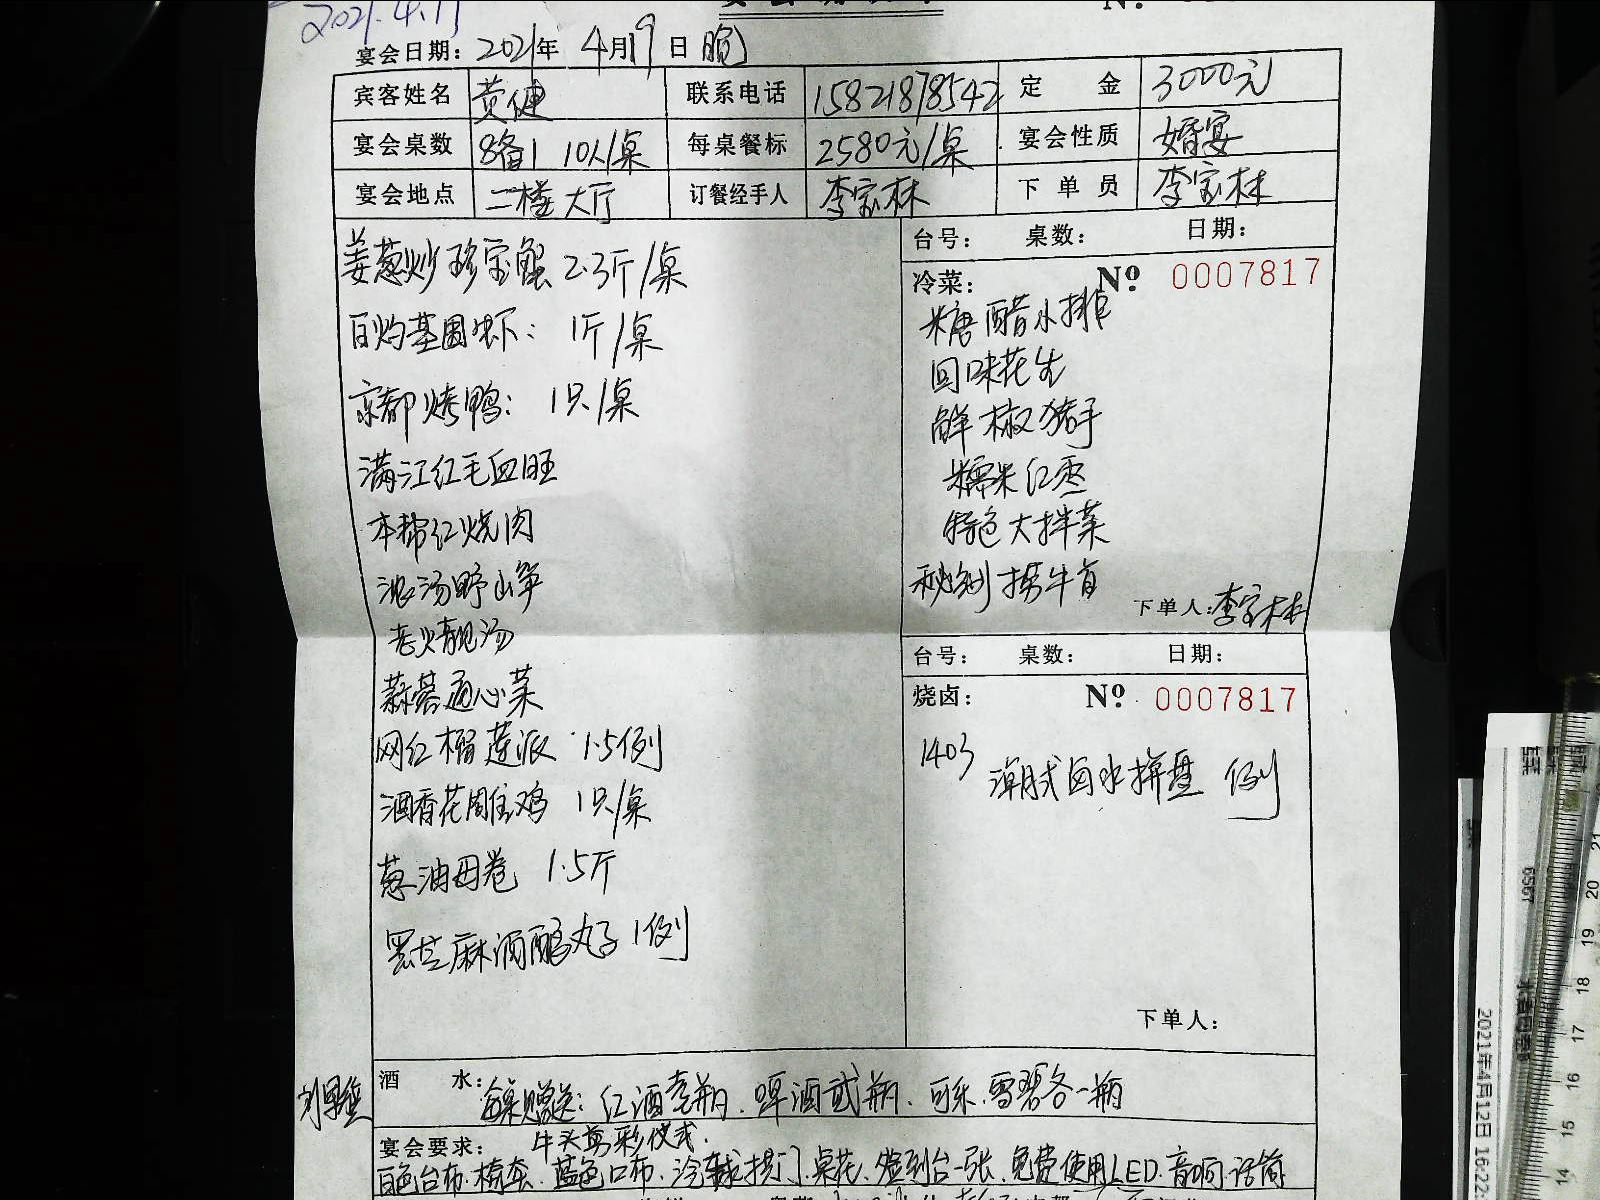 2021.4.17
宴会日期：2021年 4月19日 晚
宾客姓名 黄健 联系电话 15821878542 定金 3000元
宴会桌数 8备1 10人/桌 每桌餐标 2580元/桌 宴会性质 婚宴
宴会地点 二楼大厅 订餐经手人 李家林 下单员 李家林
姜葱炒珍宝蟹 2.3斤/桌
白灼基围虾： 1斤/桌
京都烤鸭： 1只/桌
满江红毛血旺
本帮红烧肉
浓汤野山笋
老火靓汤
蒜蓉通心菜
网红榴莲派 1.5例
酒香花雕鸡 1只/桌
葱油花卷 1.5斤
黑芝麻酒酿丸子 1例
台号： 桌数： 日期：
冷菜： Nº 0007817
糖醋小排
回味花生
鲜椒猪手
糯米红枣
特色大拌菜
秘制捞牛肉
下单人：李家林
台号： 桌数： 日期：
烧卤： Nº 0007817
1403 潮式卤水拼盘 例
下单人：
酒水：每桌赠送：红酒壹瓶、啤酒贰瓶、可乐、雪碧各一瓶
宴会要求： 牛头剪彩仪式.
白色台布、椅套、蓝色口布、气球拱门、桌花、签到台一张、免费使用LED、音响、话筒
2021年4月12日 16:22
6567
21
20
19
18
17
16
15
14